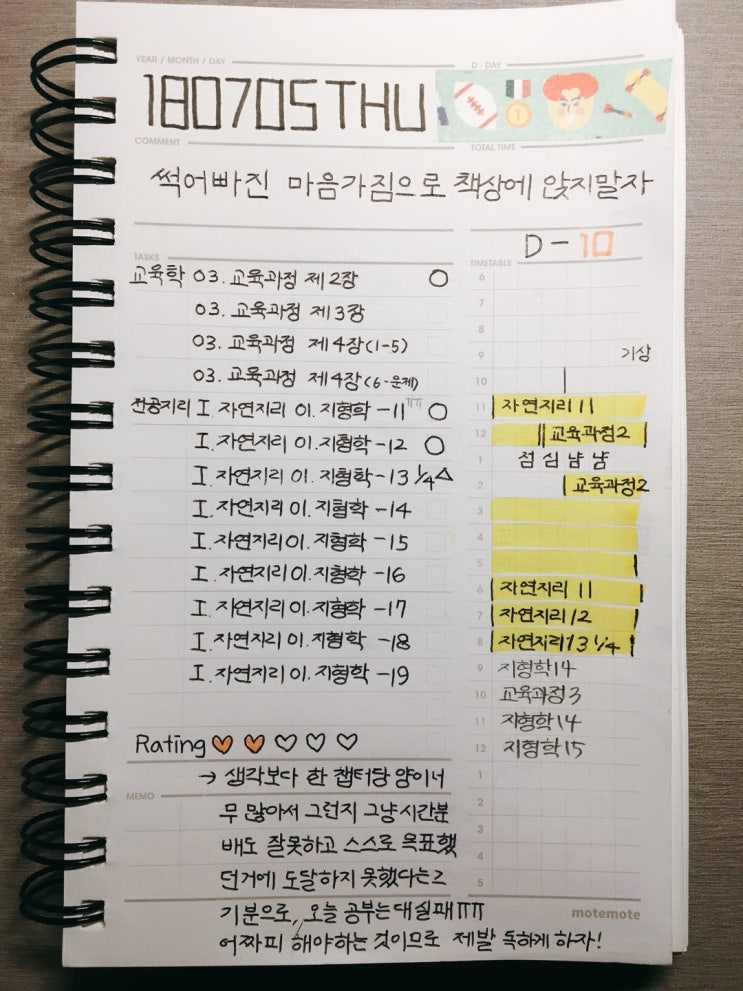 YEAR / MONTH / DAY
D - DAY
180705THU
1
COMMENT
TOTAL TIME
썩어빠진 마음가짐으로 책상에 앉지말자
D-10
TASKS
TIMETABLE
교육학 03. 교육과정 제2장 ○
03. 교육과정 제3장
03. 교육과정 제4장(1-5)
03. 교육과정 제4장(6-문제)
전공지리 I. 자연지리 01. 지형학 -11 ㅠㅠ ○
I. 자연지리 01. 지형학 -12 ○
I. 자연지리 01. 지형학 -13 1/4 △
I. 자연지리 01. 지형학 -14
I. 자연지리 01. 지형학 -15
I. 자연지리 01. 지형학 -16
I. 자연지리 01. 지형학 -17
I. 자연지리 01. 지형학 -18
I. 자연지리 01. 지형학 -19
6
7
8
9 기상
10
11 자연지리 11
12 교육과정2
1 점심냠냠
2 교육과정2
3
4
5
6 자연지리 11
7 자연지리12
8 자연지리13 1/4
9 지형학14
10 교육과정3
11 지형학14
12 지형학15
1
2
3
4
5
Rating
→ 생각보다 한 챕터당 양이너
MEMO
무 많아서 그런지 그냥 시간분
배도 잘못하고 스스로 목표했
던거에 도달하지 못했다는
기분으로, 오늘 공부는 대실패 ㅠㅠ
어짜피 해야하는 것이므로 제발 독하게 하자!
motemote